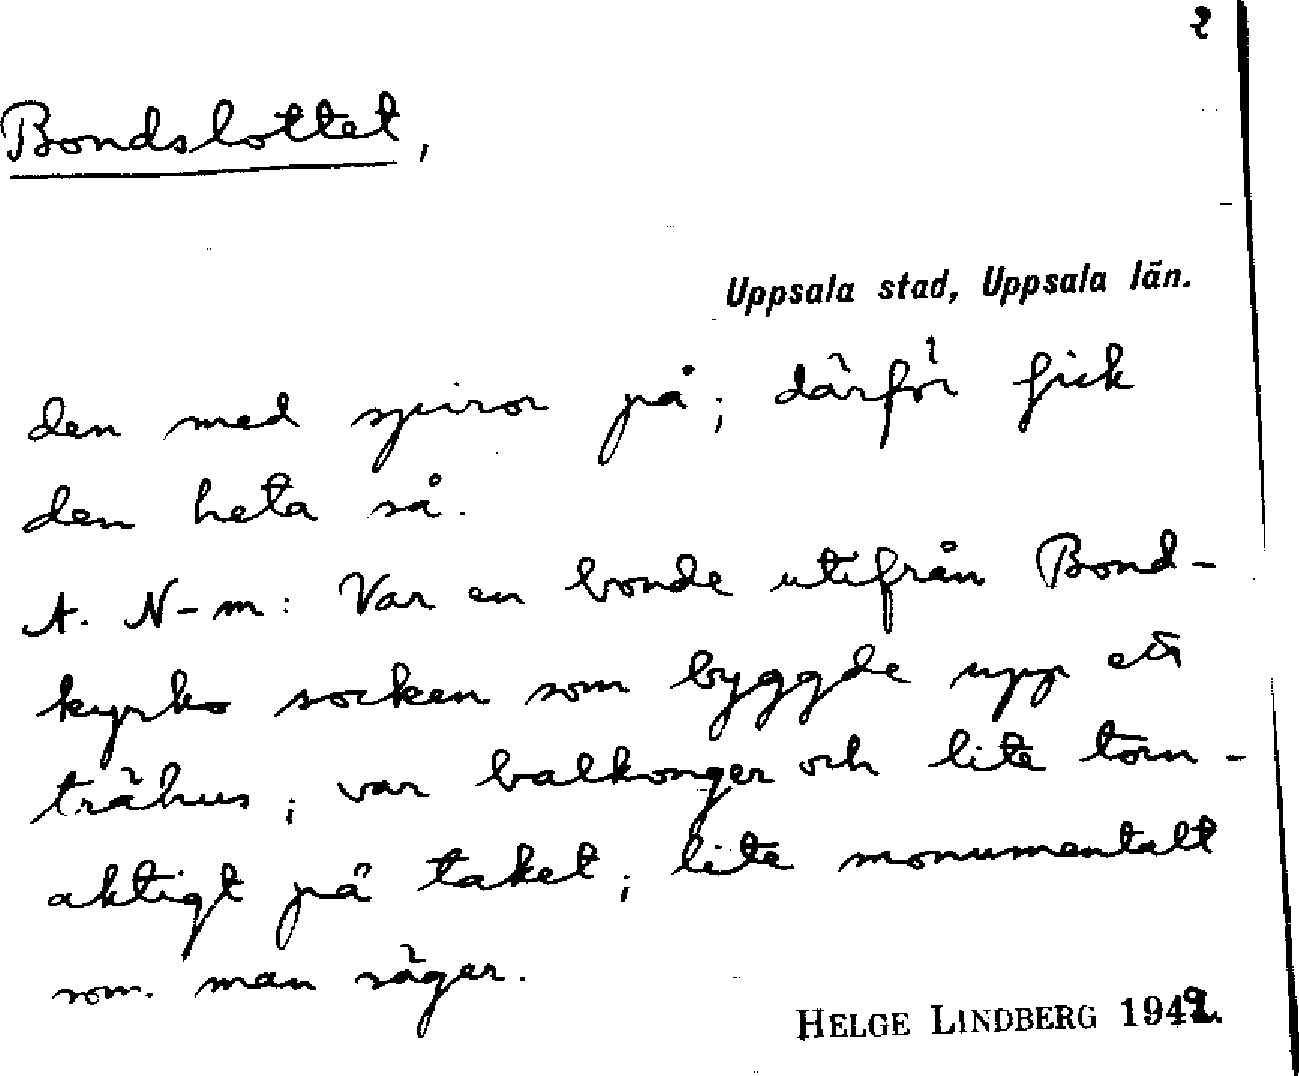 2
Bondslottet,
Uppsala stad, Uppsala län.
den med spiror på; därför fick
den heta så.
A. N-m: Var en bonde utifrån Bond-
kyrko socken som byggde upp ett
trähus; var balkonger och lite torn-
aktigt på taket; lite monumentalt
som man säger.
HELGE LINDBERG 1949.